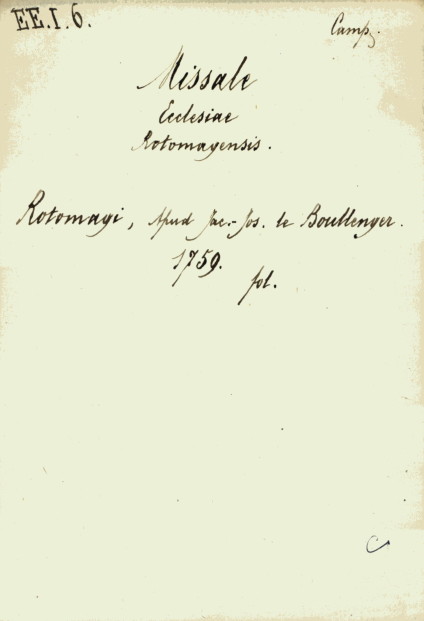 EE.I.6.
Camp.
Missale
Ecclesiae
Rotomagensis.
Rotomagi, Apud Jac.-Jos. le Boullenger.
1759.
fol.
C